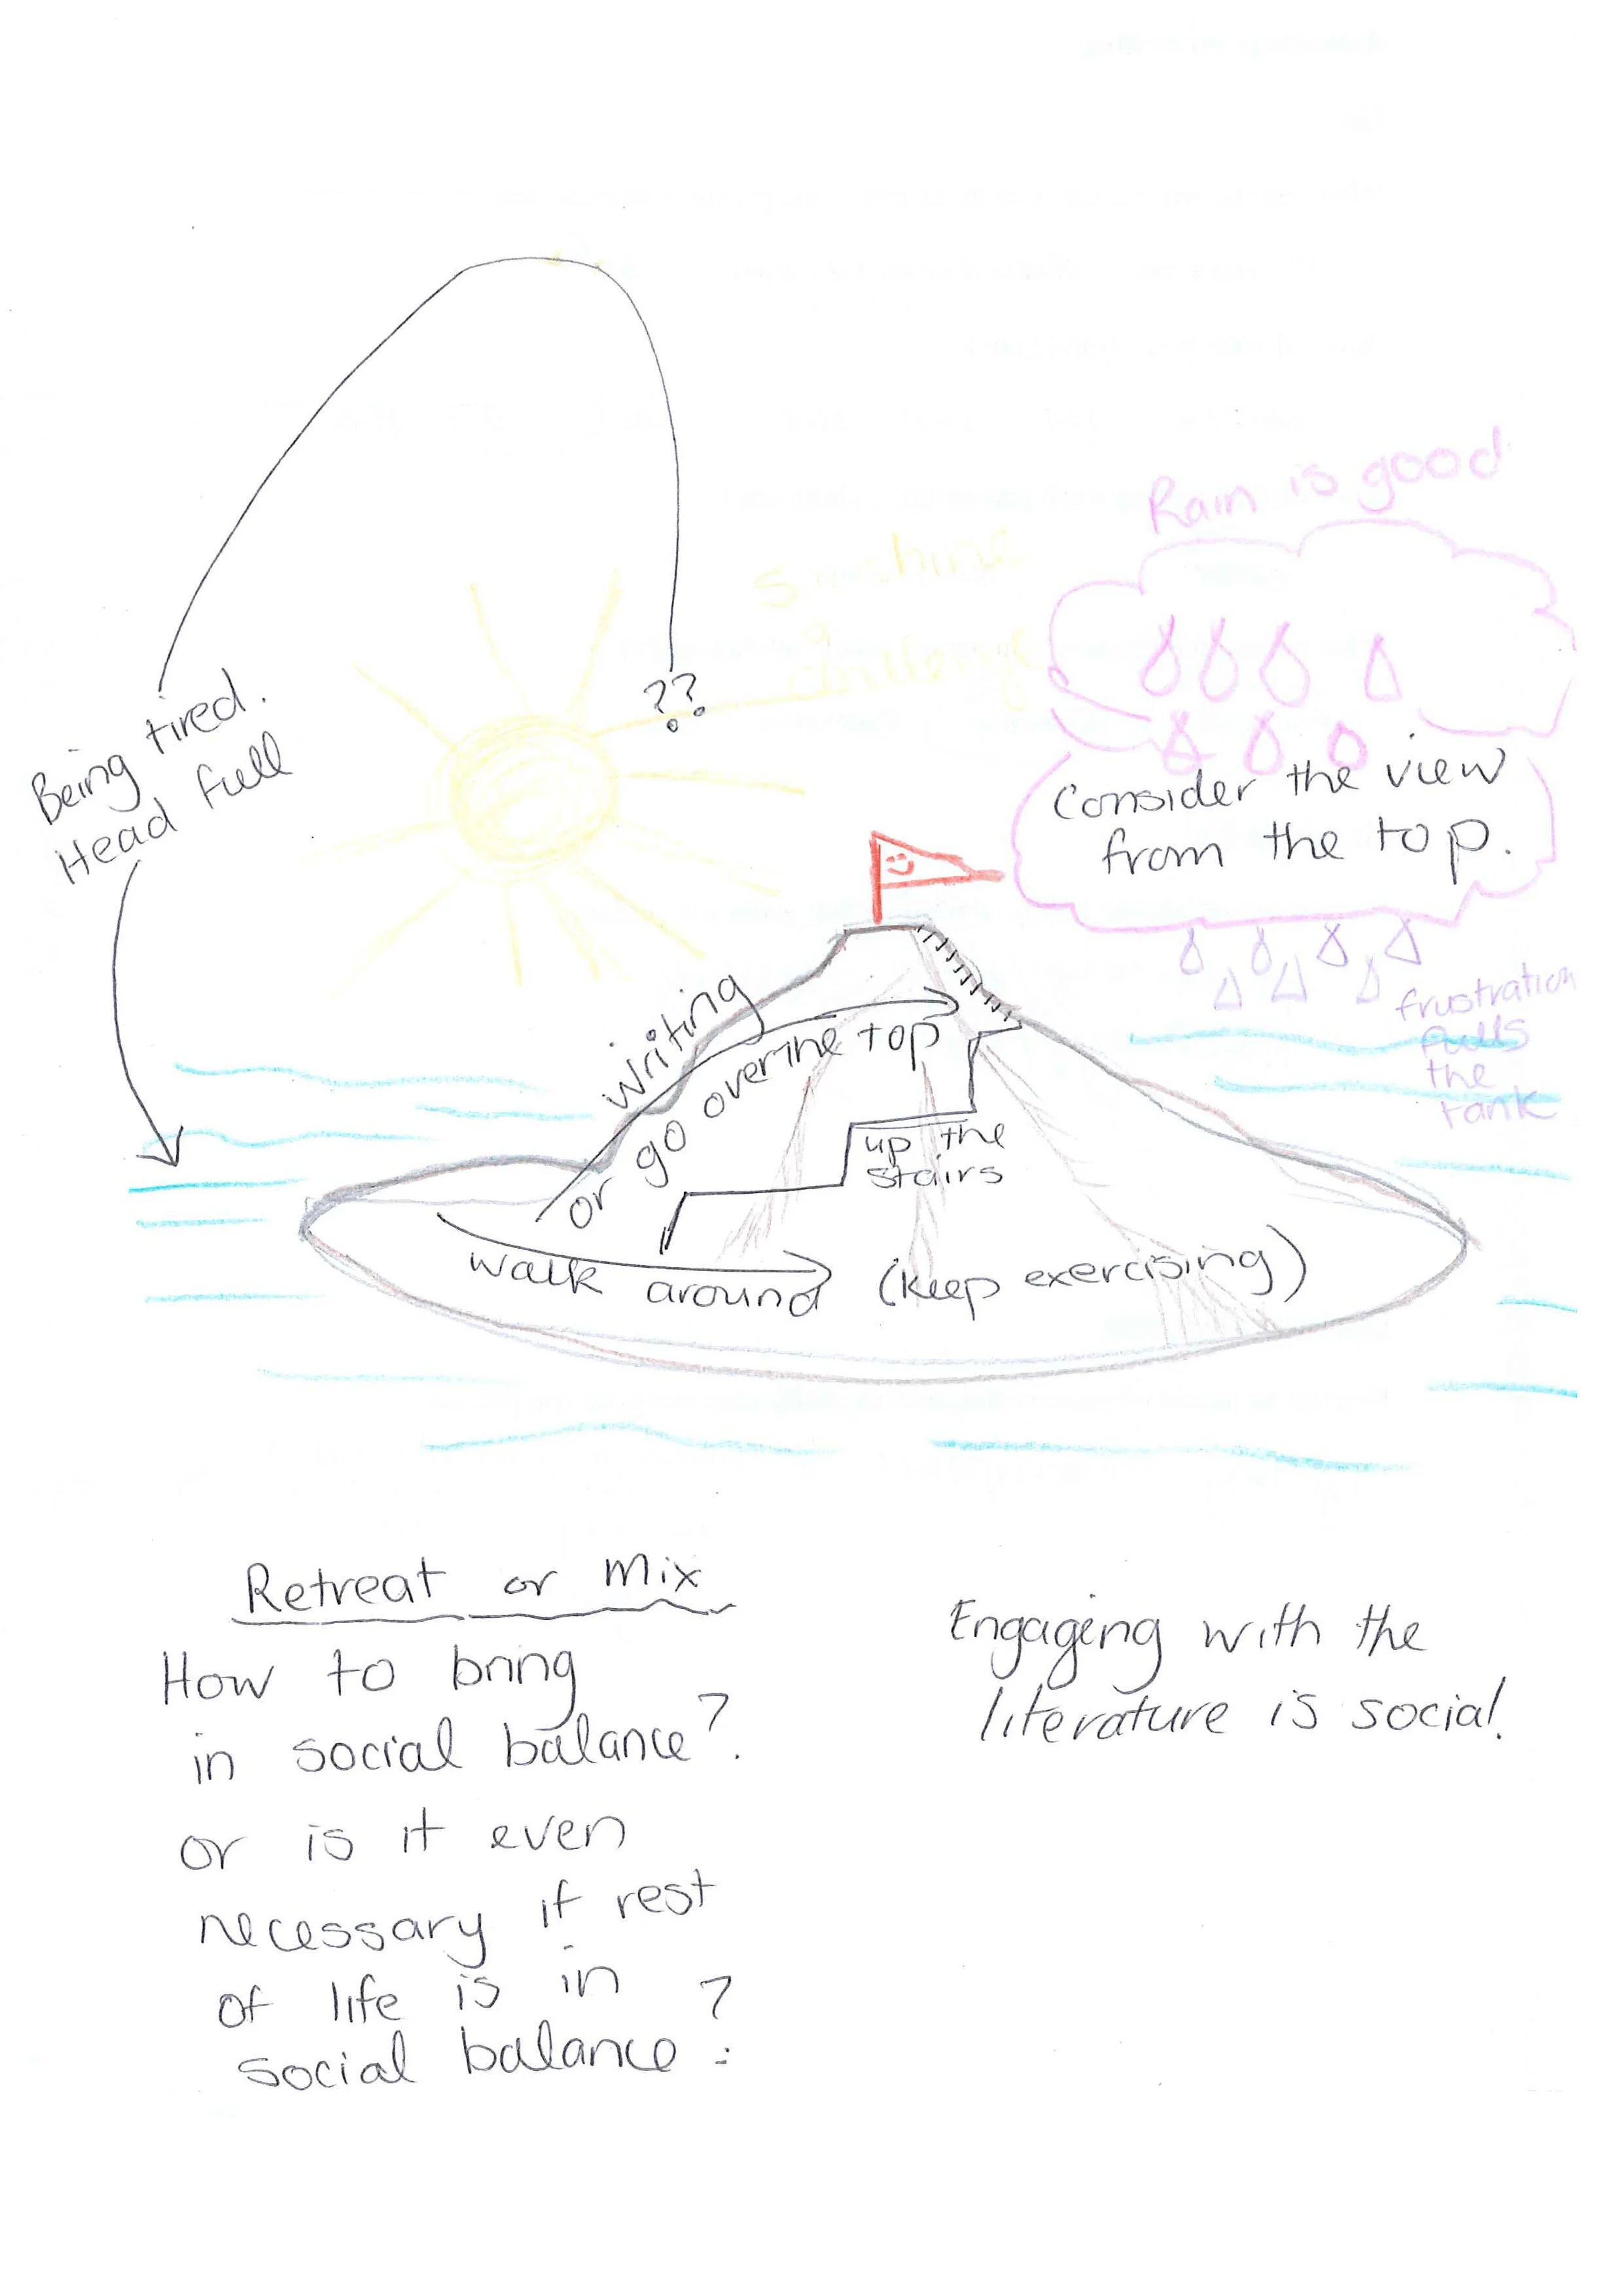 Rain is good
sunshine
a
challenge
??
Being tired.
Head full
Consider the view
from the top.
frustration
fills
the
tank
writing
or go over the top
up the
stairs
walk around (keep exercising)
Retreat or Mix
How to bring
in social balance?
or is it even
necessary if rest
of life is in
social balance?
Engaging with the
literature is social.